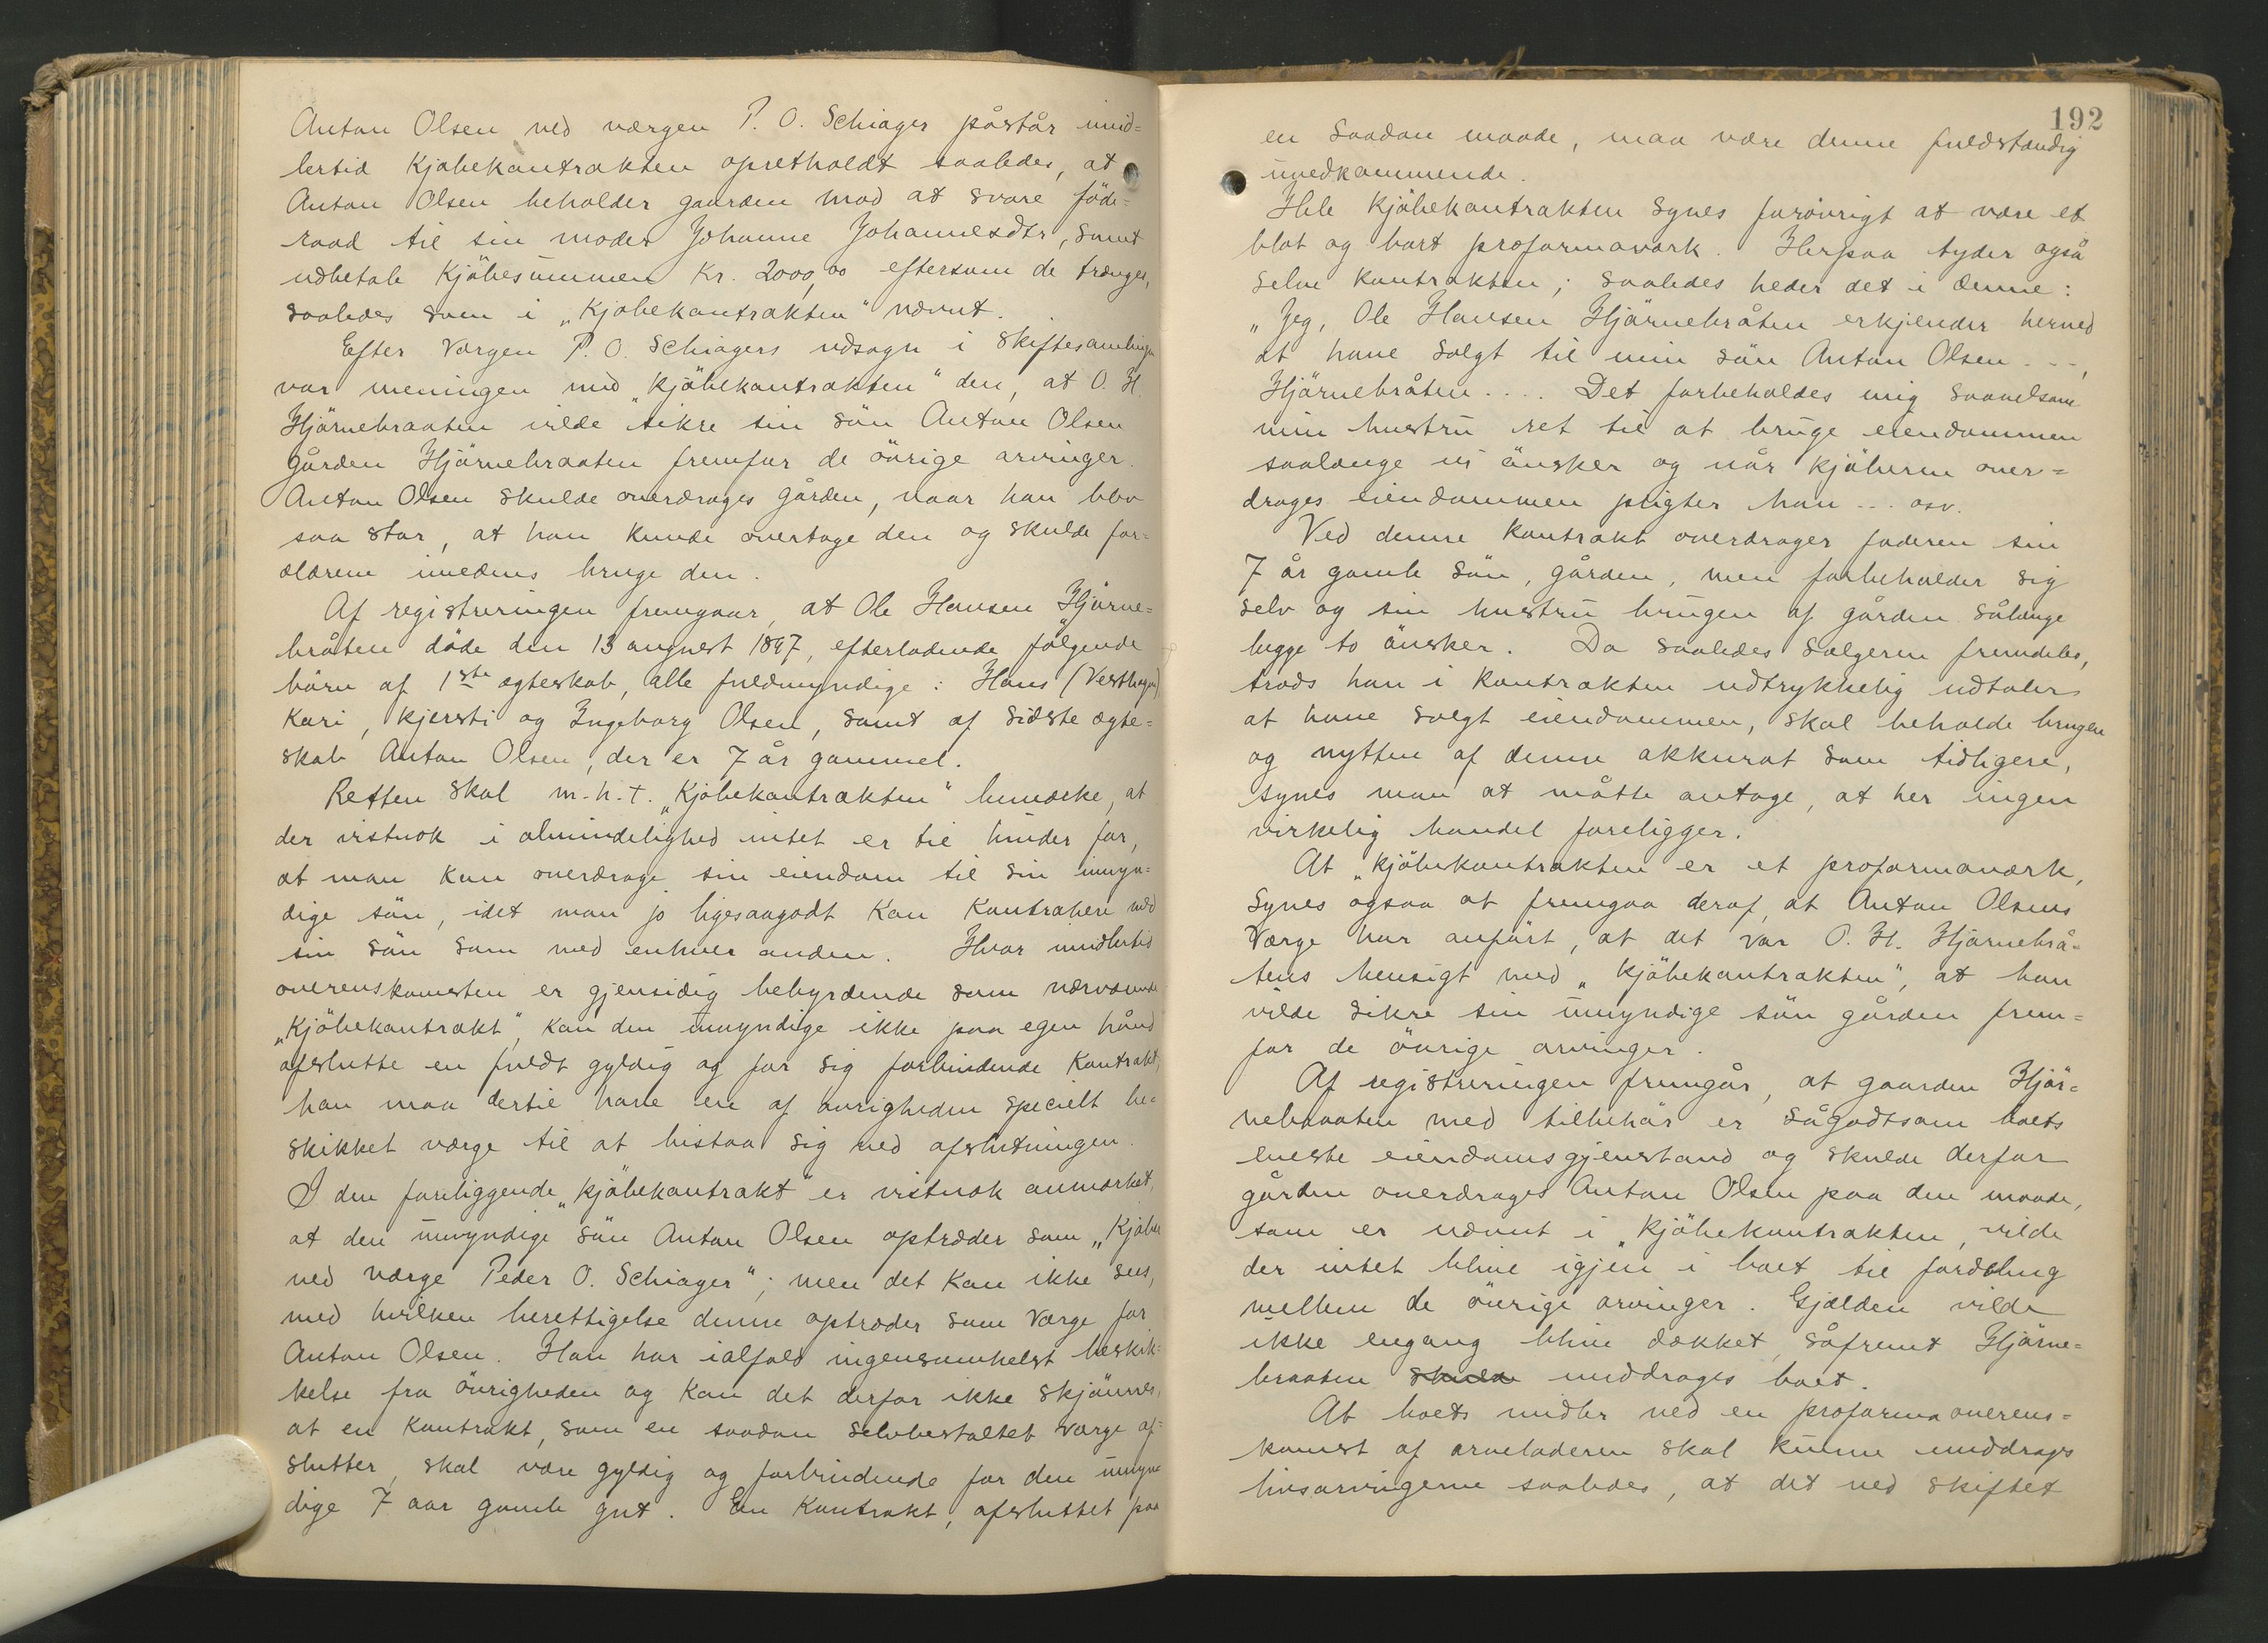 Anton Olsen ved værgen P. O. Schiager påstår imid=
lertid Kjøbekontrakten opretholdt saaledes, at
Anton Olsen beholder gaarden mod at svare föde=
raad til sin moder Johanne Johannesdtr, samt
udbetale Kjöbesummen Kr. 2000,00 eftersom de trænges,
saaledes som i „Kjøbekontrakten" nævnt.
Efter værgen P. O. Schiagers udsagn i skiftesamlingen
var meningen med „kjöbekontrakten" den, at O. H.
Hjörnebraaten vilde sikre sin sön Anton Olsen
gården Hjörnebraaten fremfor de övrige arvinger.
Anton Olsen skulde overdrages gården, naar han blev
saa stor, at han kunde overtage den og skulde for=
ældrene imedens bruge den.
Af registreringen fremgaar, at Ole Hansen Hjörne=
bråten döde den 13 august 1897, efterladende følgende
börn af 1ste ægteskab, alle fuldmyndige: Hans (Vesthagen)
Kari, Kjersti og Ingeborg Olsen, samt af sidste ægte=
skab Anton Olsen, der er 7 år gammel.
Retten skal m.h.t. „Kjöbekontrakten" bemærke, at
der vistnok i almindelighed intet er til hinder for,
at man kan overdrage sin eiendom til sin umyn=
dige sön, idet man jo ligesaagodt kan kontrahere med
sin sön som med enhver anden. Hvor imidlertid
overenskomsten er gjensidig bebyrdende som nærværende
„Kjöbekontrakt", kan den umyndige ikke paa egen hånd
afslutte en fuldt gyldig og for sig forbindende Kontrakt,
han maa dertil have en af øvrigheden specielt be=
skikket værge til at bistaa sig ved afslutningen.
I den foreliggende „kjöbekontrakt" er vistnok anmærket,
at den umyndige sön Anton Olsen optræder som „Kjøber
ved værge Peder O. Schiager"; men det kan ikke sees,
med hvilken berettigelse denne optræder som værge for
Anton Olsen. Han har ialfald ingensomhelst beskik=
kelse fra övrigheden og kan det derfor ikke skjönnes,
at en Kontrakt, som en saadan selvbestaltet værge af=
slutter, skal være gyldig og forbindende for den umyn
dige 7 aar gamle gut. En Kontrakt, afsluttet paa
192
en saadan maade, maa være denne fuldstændig
uvedkommende.
Hele Kjöbekontrakten synes forövrigt at være et
blot og bart proformaværk. Herpaa tyder også
selve kontrakten; saaledes heder det i denne:
„Jeg, Ole Hansen Hjörnebråten erkjender herved
at have solgt til min sön Anton Olsen - - -,
Hjörnebråten .... Det forbeholdes mig saavelsom
min hustru ret til at bruge eiendommen
saalænge vi önsker og når kjöberen over=
drages eiendommen pligter han ... osv.
Ved denne kontrakt overdrager faderen sin
7 år gamle sön, gården, men forbeholder sig
selv og sin hustru brugen af gården sålænge
begge to önsker. Da saaledes sælgeren fremdeles,
trods han i kontrakten udtrykkelig udtaler
at have solgt eiendommen, skal beholde brugen
og nytten af denne akkurat som tidligere,
synes man at måtte antage, at her ingen
virkelig handel foreligger.
At „kjöbekontrakten er et proformaværk,
synes ogsaa at fremgaa deraf, at Anton Olsens
Værge har anfört, at det var O. H. Hjörnebrå=
tens hensigt med „kjöbekontrakten", at han
vilde sikre sin umyndige sön gården frem=
for de övrige arvinger.
Af registreringen fremgår, at gaarden Hjör=
nebraaten med tilbehör er sågodtsom boets
eneste eiendomsgjenstand og skulde derfor
gården overdrages Anton Olsen paa den maade,
som er nævnt i „kjöbekontrakten, vilde
der intet blive igjen i boet til fordeling
mellem de övrige arvinger. Gjælden vilde
ikke engang blive dækket, såfremt Hjörne=
braaten skulde unddrages boet.
At boets midler ved en proforma overens=
komst af arveladeren skal kunne unddrages
livsarvingerne saaledes, at det ved skiftet